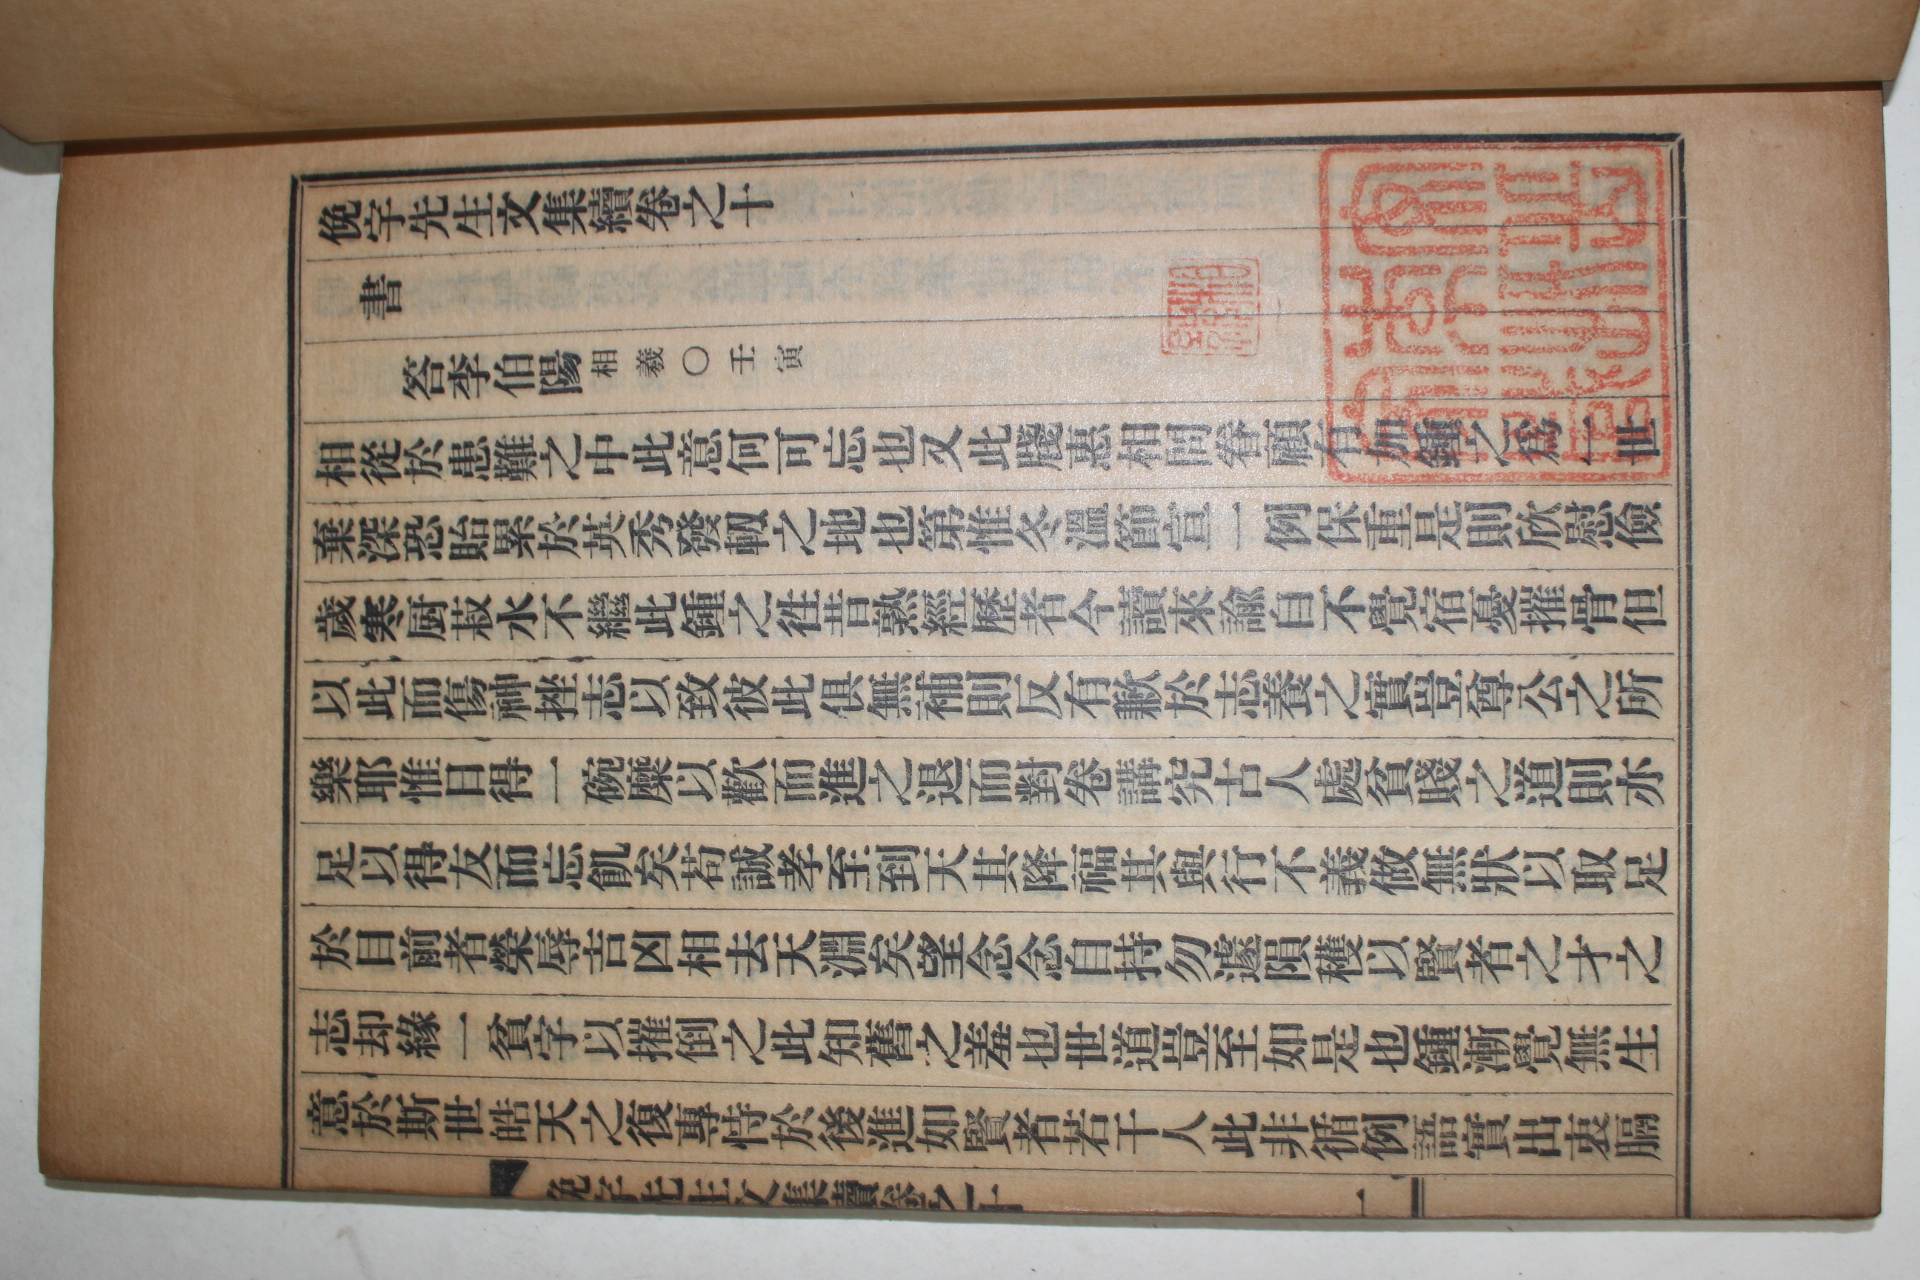 俛宇先生文集續卷之十
書
答李伯陽相羲○壬寅
相從於患難之中此意何可忘也又此牋惠相問眷顧有加鍾之爲一世
棄深恐貽累於英秀發軔之地也第惟冬溫節宣一例保重是則欣慰儉
歲寒厨菽水不繼此鍾之徃昔熟經歷者今讀來諭自不覺宿憂摧骨但
以此而傷神挫志以致彼此俱無補則反有歉於志養之實豈尊公之所
樂耶惟日得一碗糜以歡而進之退而對卷講究古人處貧賤之道則亦
足以得友而忘飢矣苟誠孝至到天其降福其與行不義做無狀以取足
於目前者榮辱吉凶相去天淵矣望念念自持勿遽隕穫以賢者之才之
志却緣一貧字以摧倒之此知舊之羞也世道豈至如是也鍾漸覺無生
意於斯世皓天之復專恃於後進如賢者若干人此非循例語實出衷膈
俛宇先生文集續卷之十 一